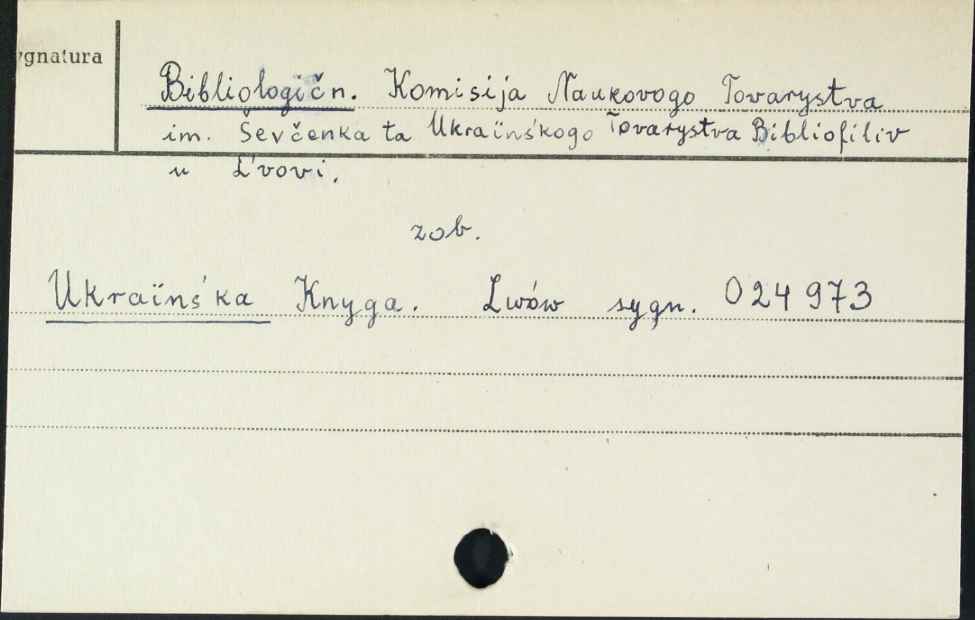 ygnatura
Bibliologičn. Komisija Naukovogo Tovarystva
im. Ševčenka ta Ukraïnśkogo Tovarystva Bibliofiliv
u L'vovi.
zob.
Ukraïnśka Knyga. Lwów sygn. 024973